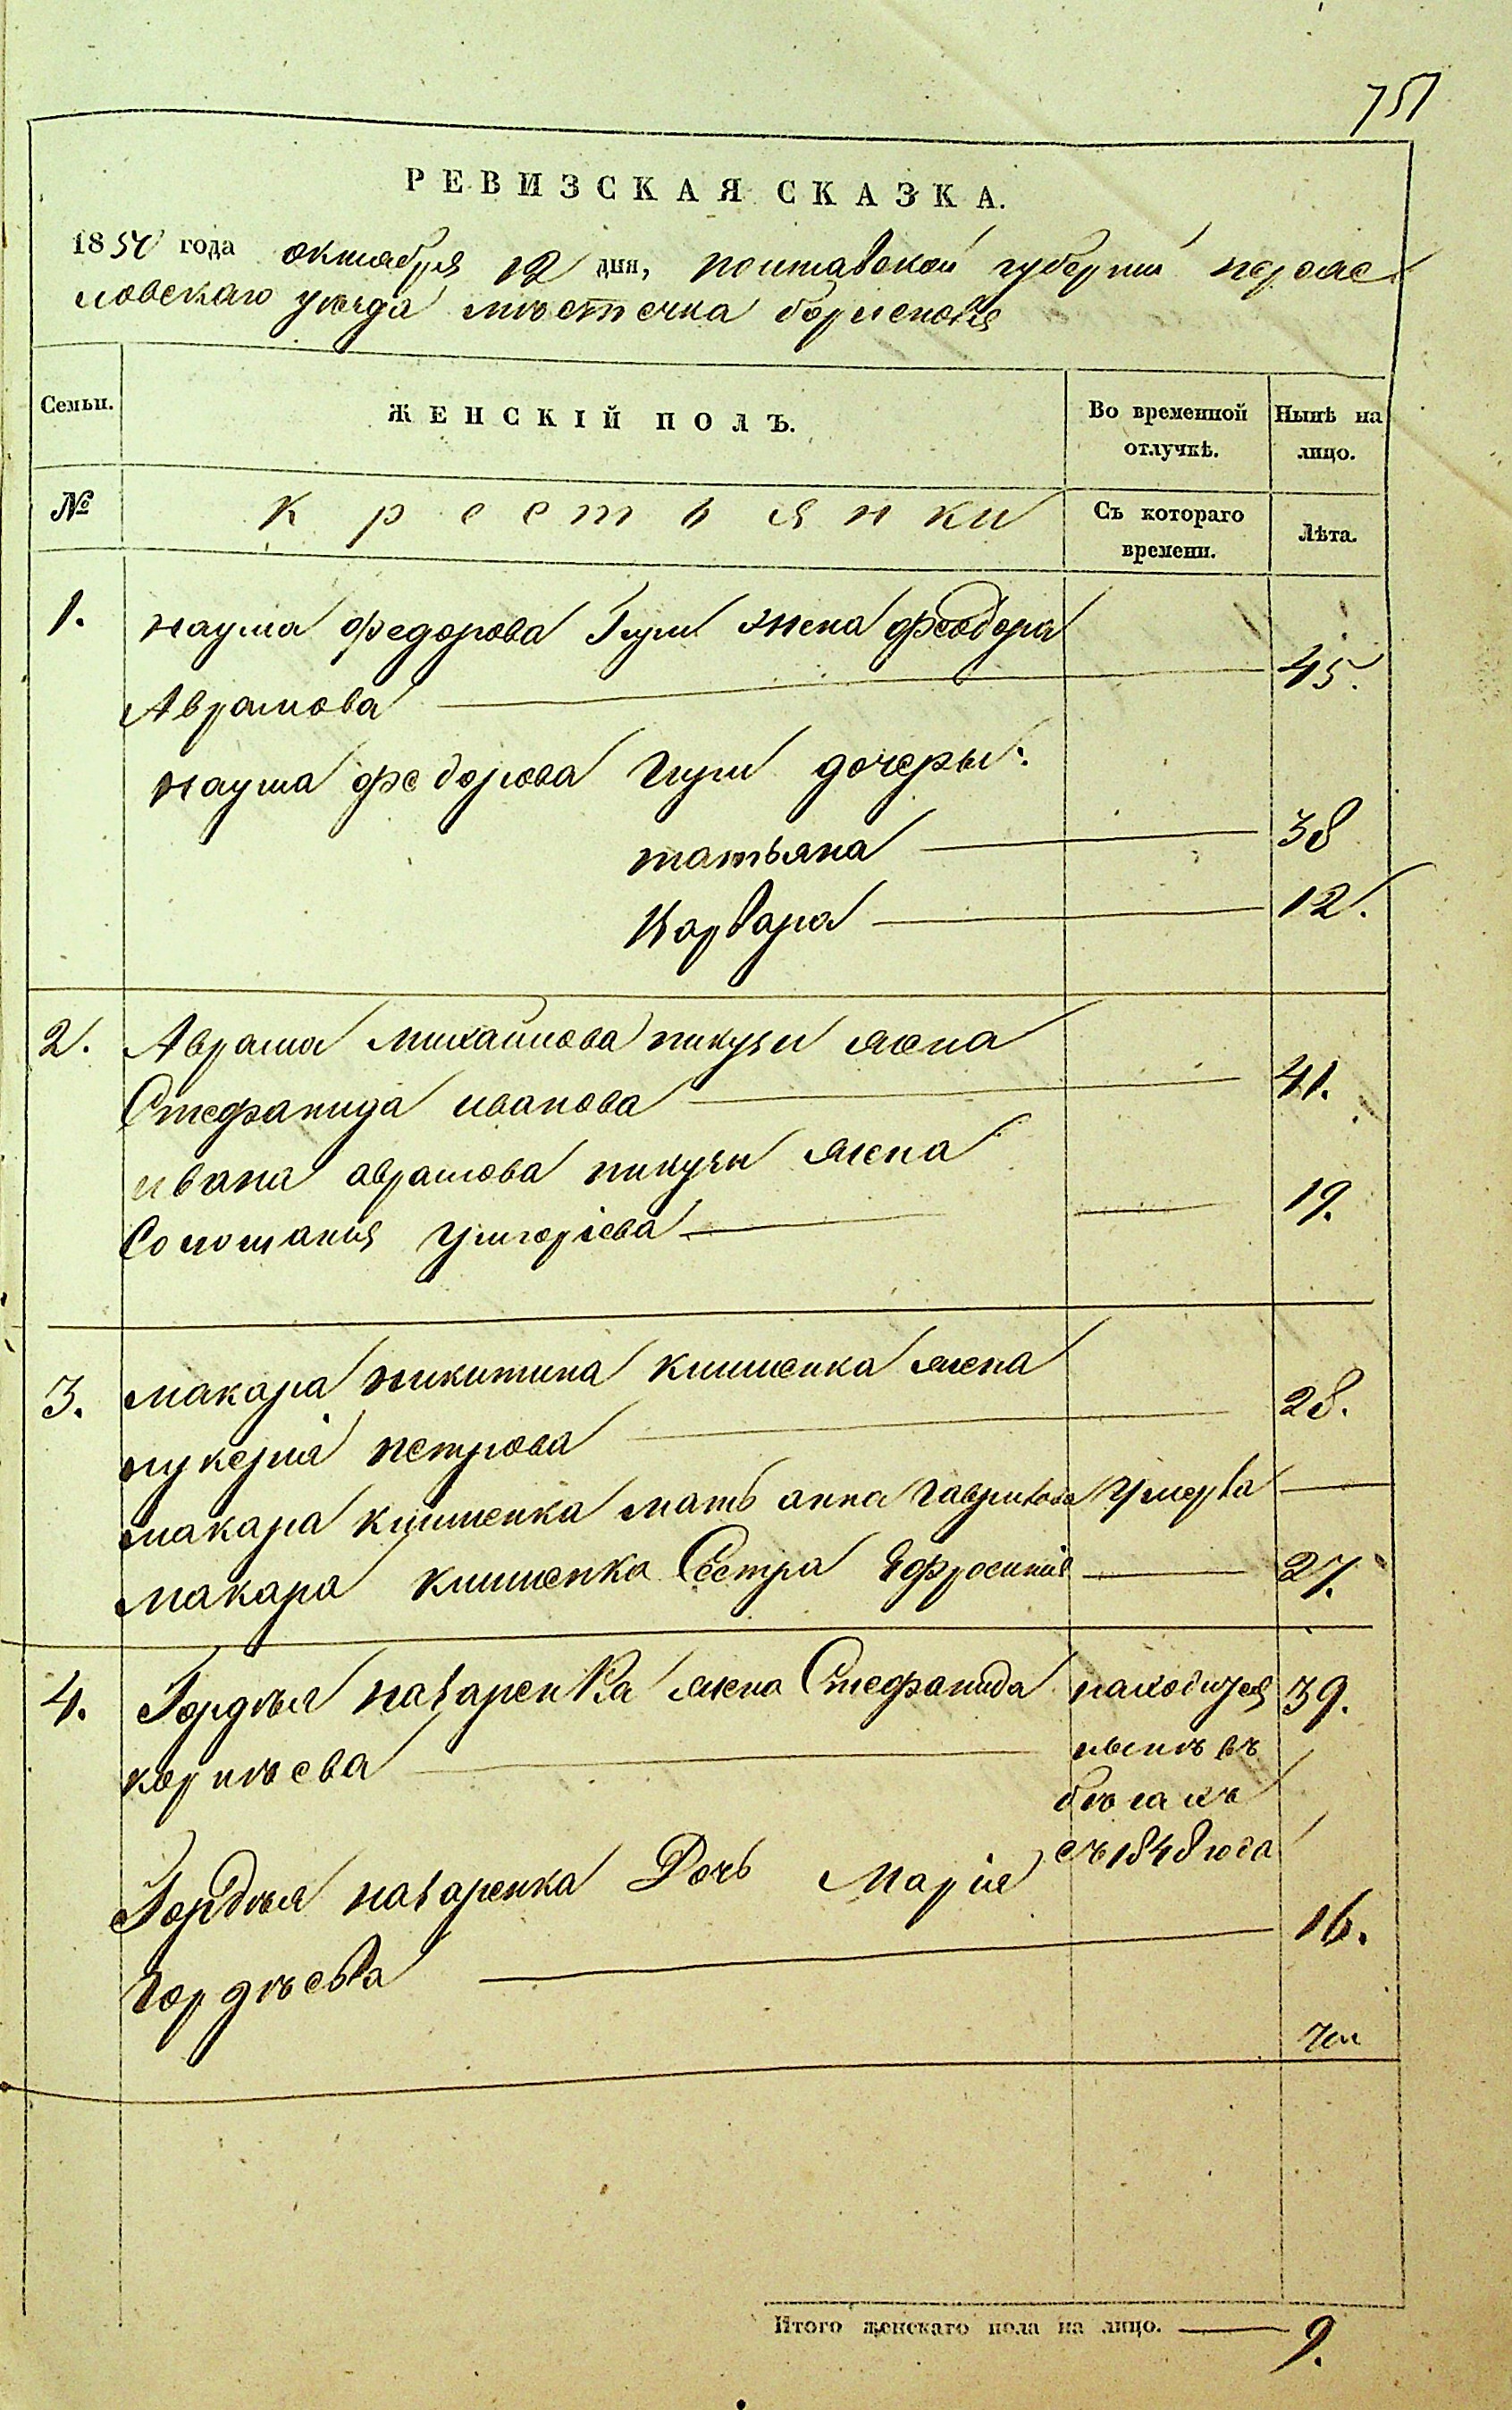 751
РЕВИЗСКАЯ СКАЗКА.
1850 года октября 12 дня, полтавской губерніи переяс
ловскаго уѣзда мѣстечка борисполя
Семьи. ЖЕНСКІЙ ПОЛЪ. Во временной отлучкѣ. Нынѣ на лицо.
№ крестьянки Съ котораго времени. Лѣта.
1. наума федорова жена феодора
Аврамова 45.
наума федорова дочеры:
татьяна 38
Варвара 12.
2. Аврама михайлова пикузы жена
Стефанида иванова 41.
ивана аврамова пикузы жена
Соломанія григоріева 19.
3. макара никитина клименка жена
лукерія петрова 28.
макара клименка мать анна гаврилова умерла
макара клименка Сестра Ефросинія 27.
4. Гордѣя назаренка жена Стефанида находится 39.
корнѣева нынѣ въ
бѣгахъ
съ 1848 года
Гордѣя назаренка Дочь Марія
гордѣева 16.
Итого женскаго пола на лицо. 9.